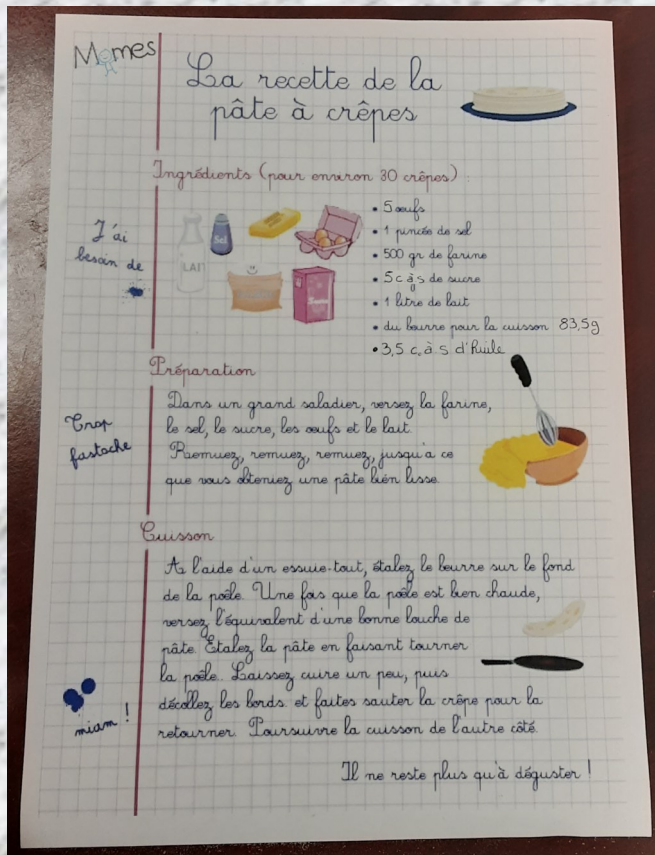 Mômes
La recette de la
pâte à crêpes
Ingrédients (pour environ 30 crêpes) :
J'ai
besoin de
Sel
LAIT
• 5 œufs
• 1 pincée de sel
• 500 gr de farine
• 5 c à s de sucre
• 1 litre de lait
• du beurre pour la cuisson 83,5g
• 3,5 c. à s d'huile
Préparation
Trop
fastoche
Dans un grand saladier, versez la farine,
le sel, le sucre, les œufs et le lait.
Raemuez, remuez, remuez, jusqu'à ce
que vous obteniez une pâte bien lisse.
Cuisson
A l'aide d'un essuie-tout, étalez le beurre sur le fond
de la poêle. Une fois que la poêle est bien chaude,
versez l'équivalent d'une bonne louche de
pâte. Étalez la pâte en faisant tourner
la poêle. Laissez cuire un peu, puis
décollez les bords et faites sauter la crêpe pour la
retourner. Poursuivre la cuisson de l'autre côté.
miam !
Il ne reste plus qu'à déguster !